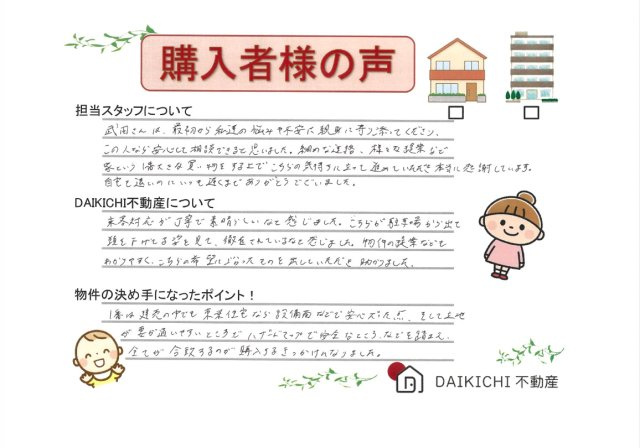 購入者様の声
担当スタッフについて
武田さんは、最初から私達の悩みや不安に親身に寄り添ってくださり、
この人なら安心して相談できると思いました。細かな連絡、様々な提案など
家という1番大きな買い物をする上でこちらの気持ちに立って進めていただき本当に感謝しています。
自宅も遠いのにいつも遅くまでありがとうございました。
DAIKICHI不動産について
来客対応が丁寧で素晴らしいなと感じました。こちらが駐車場から出て
頭を下げてる姿を見て、徹底されているなと感じました。物件の提案なども
わかりやすく、こちらの希望に沿ったものを出していただき助かりました。
物件の決め手になったポイント！
1番は建売の中でも東栄住宅なら設備面などで安心だった点、そして立地
が妻が通いやすいところでハザードマップで安全なところ、などを踏まえ、
全てが合致するのが購入するきっかけになりました。
DAIKICHI 不動産